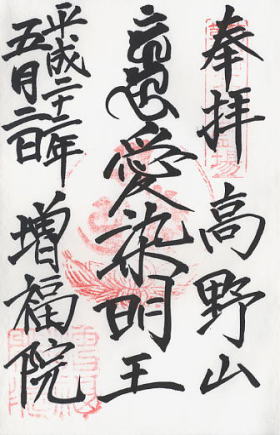 奉拝 高野山
愛染明王
平成二十二年
五月二日
増福院